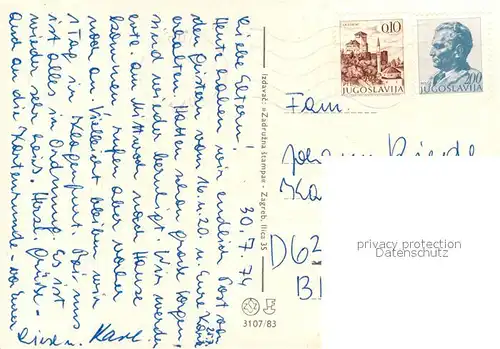 30.7.74
Liebe Eltern!
Heute haben wir endlich Post von
den vom 16. u. 20. u. Eure Karte
25.7.
erhalten. Hatten schon große Sorgen,
sind wieder beruhigt. Wir werden
erst am Mittwoch nach Hause
kommen, rufen aber vorher
noch an. Vielleicht bleiben wir
1 Tag in Klagenfurt. Bei uns
ist alles in Ordnung. Es ist
wieder sehr heiß. Herzl. Grüße -
auch an die Kartenrunde - von Eurer
Liese u. Karl
Izdavač: »Zadružna štampa« - Zagreb, Ilica 35
3107/83
0.10
JUGOSLAVIJA
2.00
JUGOSLAVIJA
Fam.
Johann
Ka
D62
B
privacy protection
Datenschutz